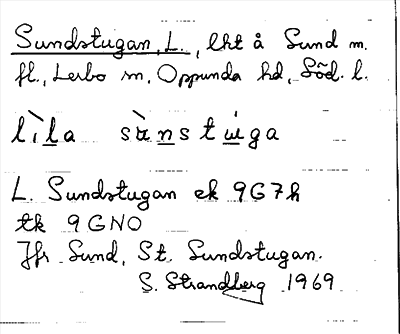 Sundstugan, L., lht å Sund m.
fl., Lerbo sn, Oppunda hd, Söd. l.
lìla sùnstuga
L. Sundstugan ek 9G7h
tk 9GNO
Jfr Sund, St. Sundstugan.
S. Strandberg 1969